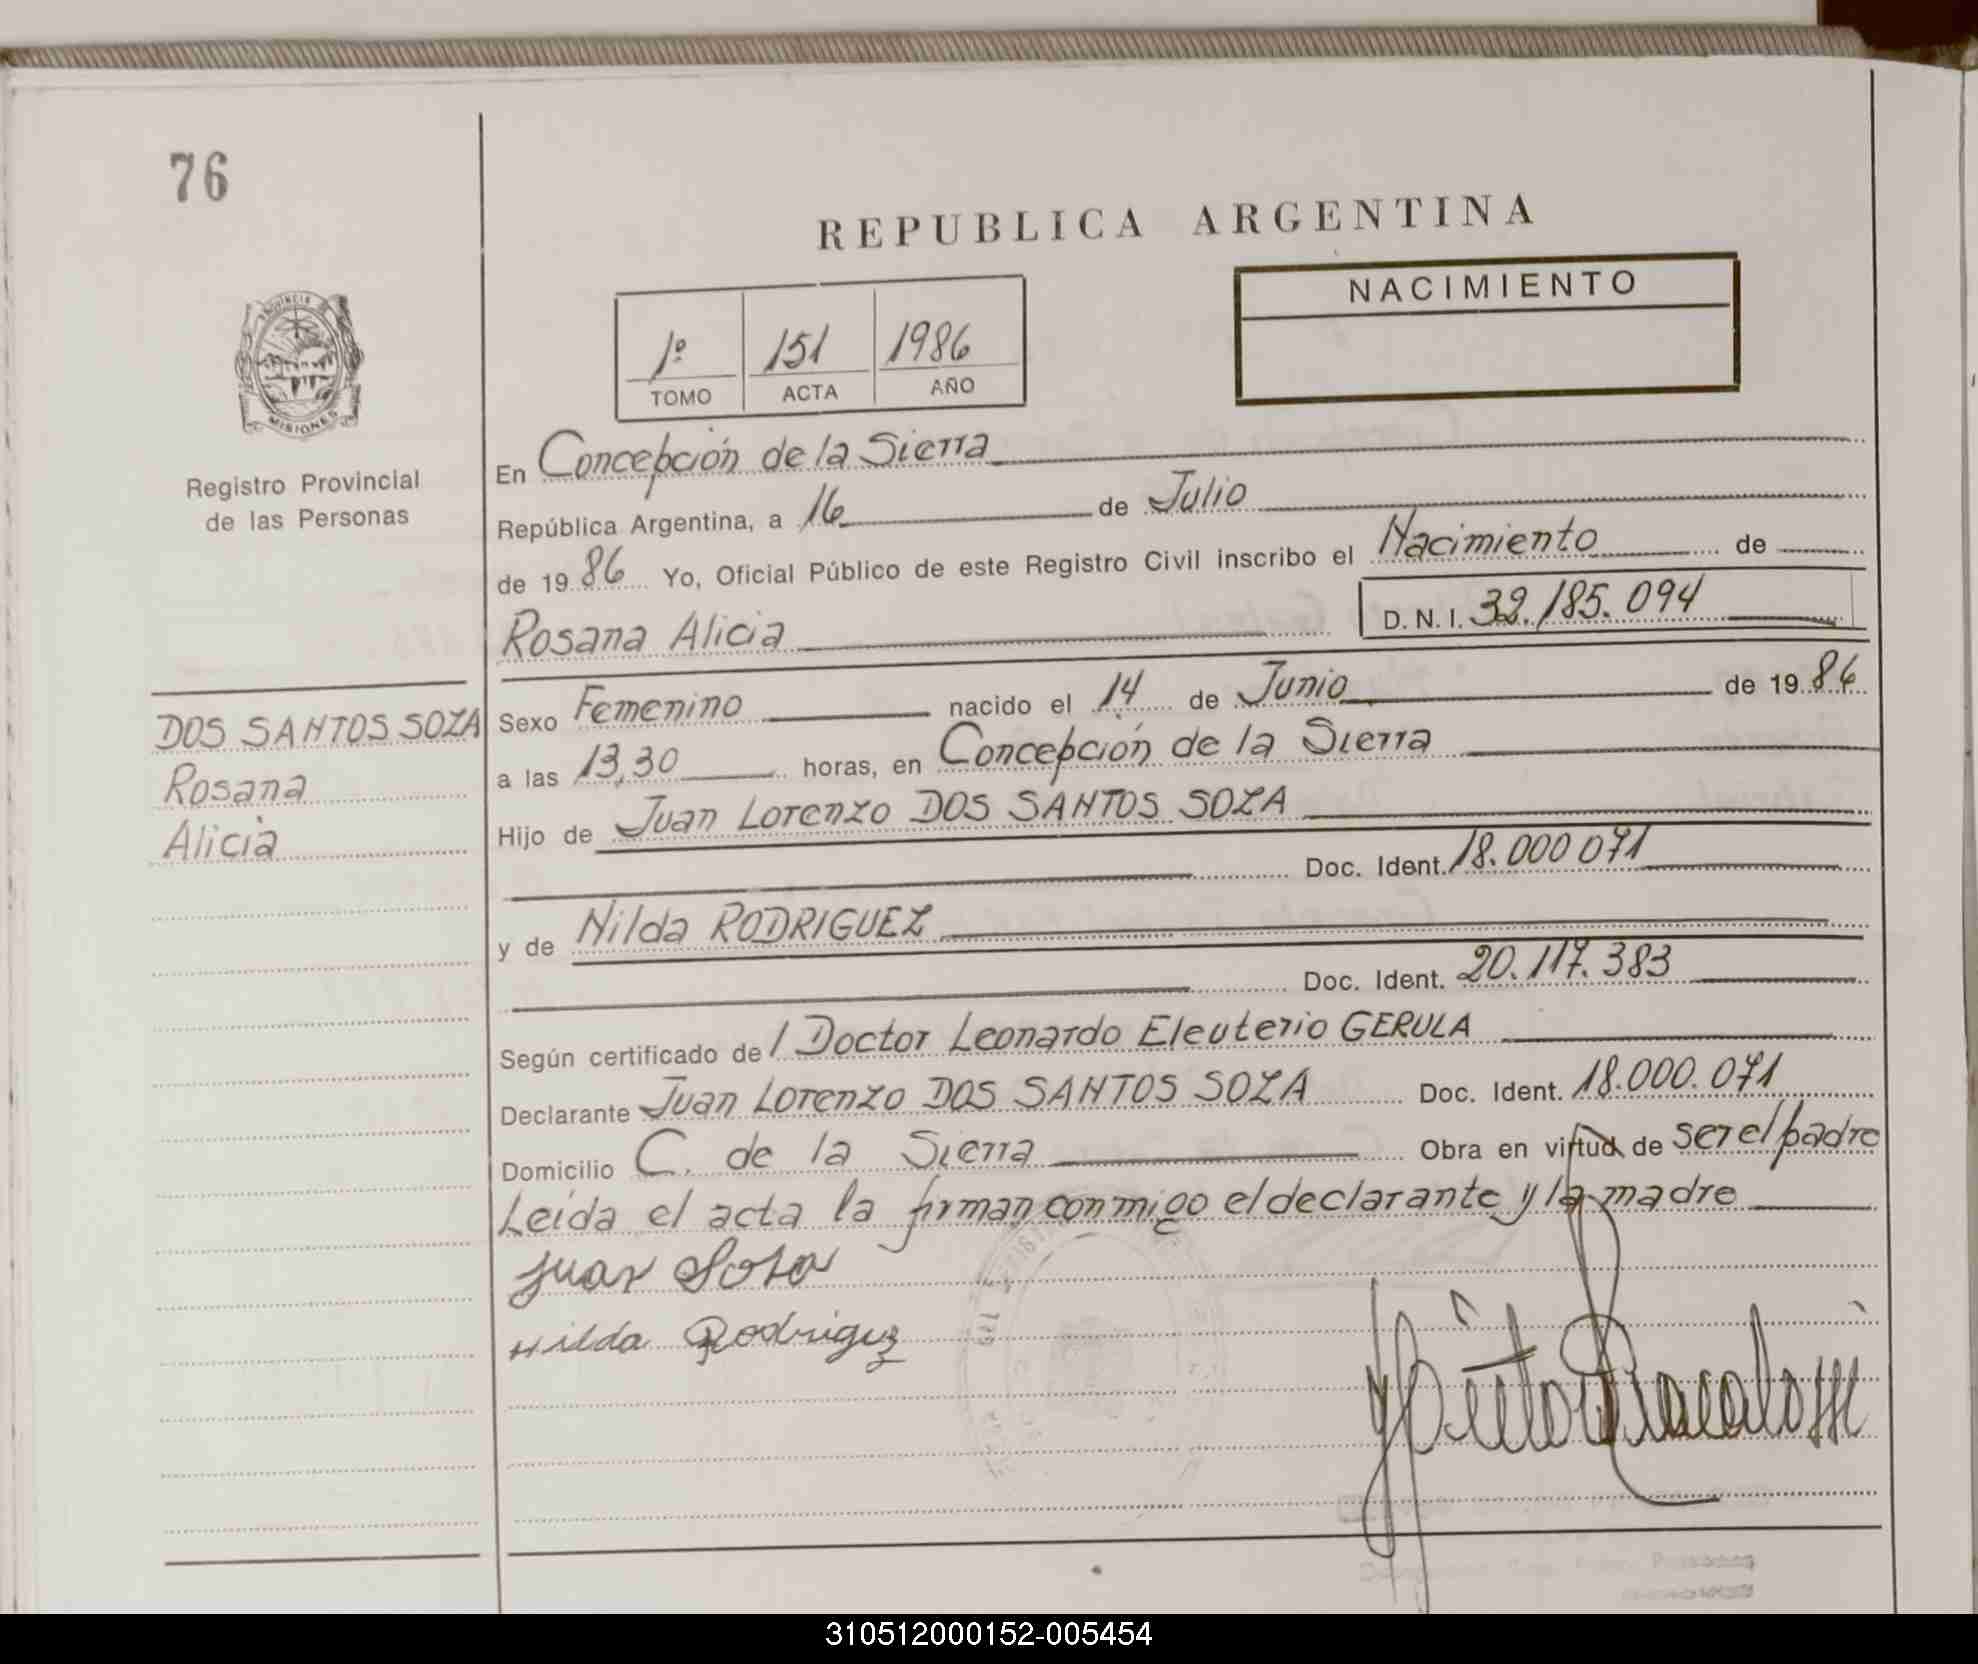 76
REPUBLICA ARGENTINA
NACIMIENTO
1º 151 1986
TOMO ACTA AÑO
MISIONES
Registro Provincial
de las Personas
En Concepción de la Sierra
República Argentina, a 16 de Julio
de 1986 Yo, Oficial Público de este Registro Civil inscribo el Nacimiento de
Rosana Alicia D. N. I. 32.185.094
DOS SANTOS SOZA
Rosana
Alicia
Sexo Femenino nacido el 14 de Junio de 1986
a las 13,30 horas, en Concepción de la Sierra
Hijo de Juan Lorenzo DOS SANTOS SOZA
Doc. Ident. 18.000 071
y de Nilda RODRIGUEZ
Doc. Ident. 20.117.383
Según certificado de l Doctor Leonardo Eleuterio GERULA
Declarante Juan Lorenzo DOS SANTOS SOZA Doc. Ident. 18.000.071
Domicilio C. de la Sierra Obra en virtud de ser el padre
Leída el acta la firman conmigo el declarante y la madre
Juan Soza
Nilda Rodriguez
310512000152-005454